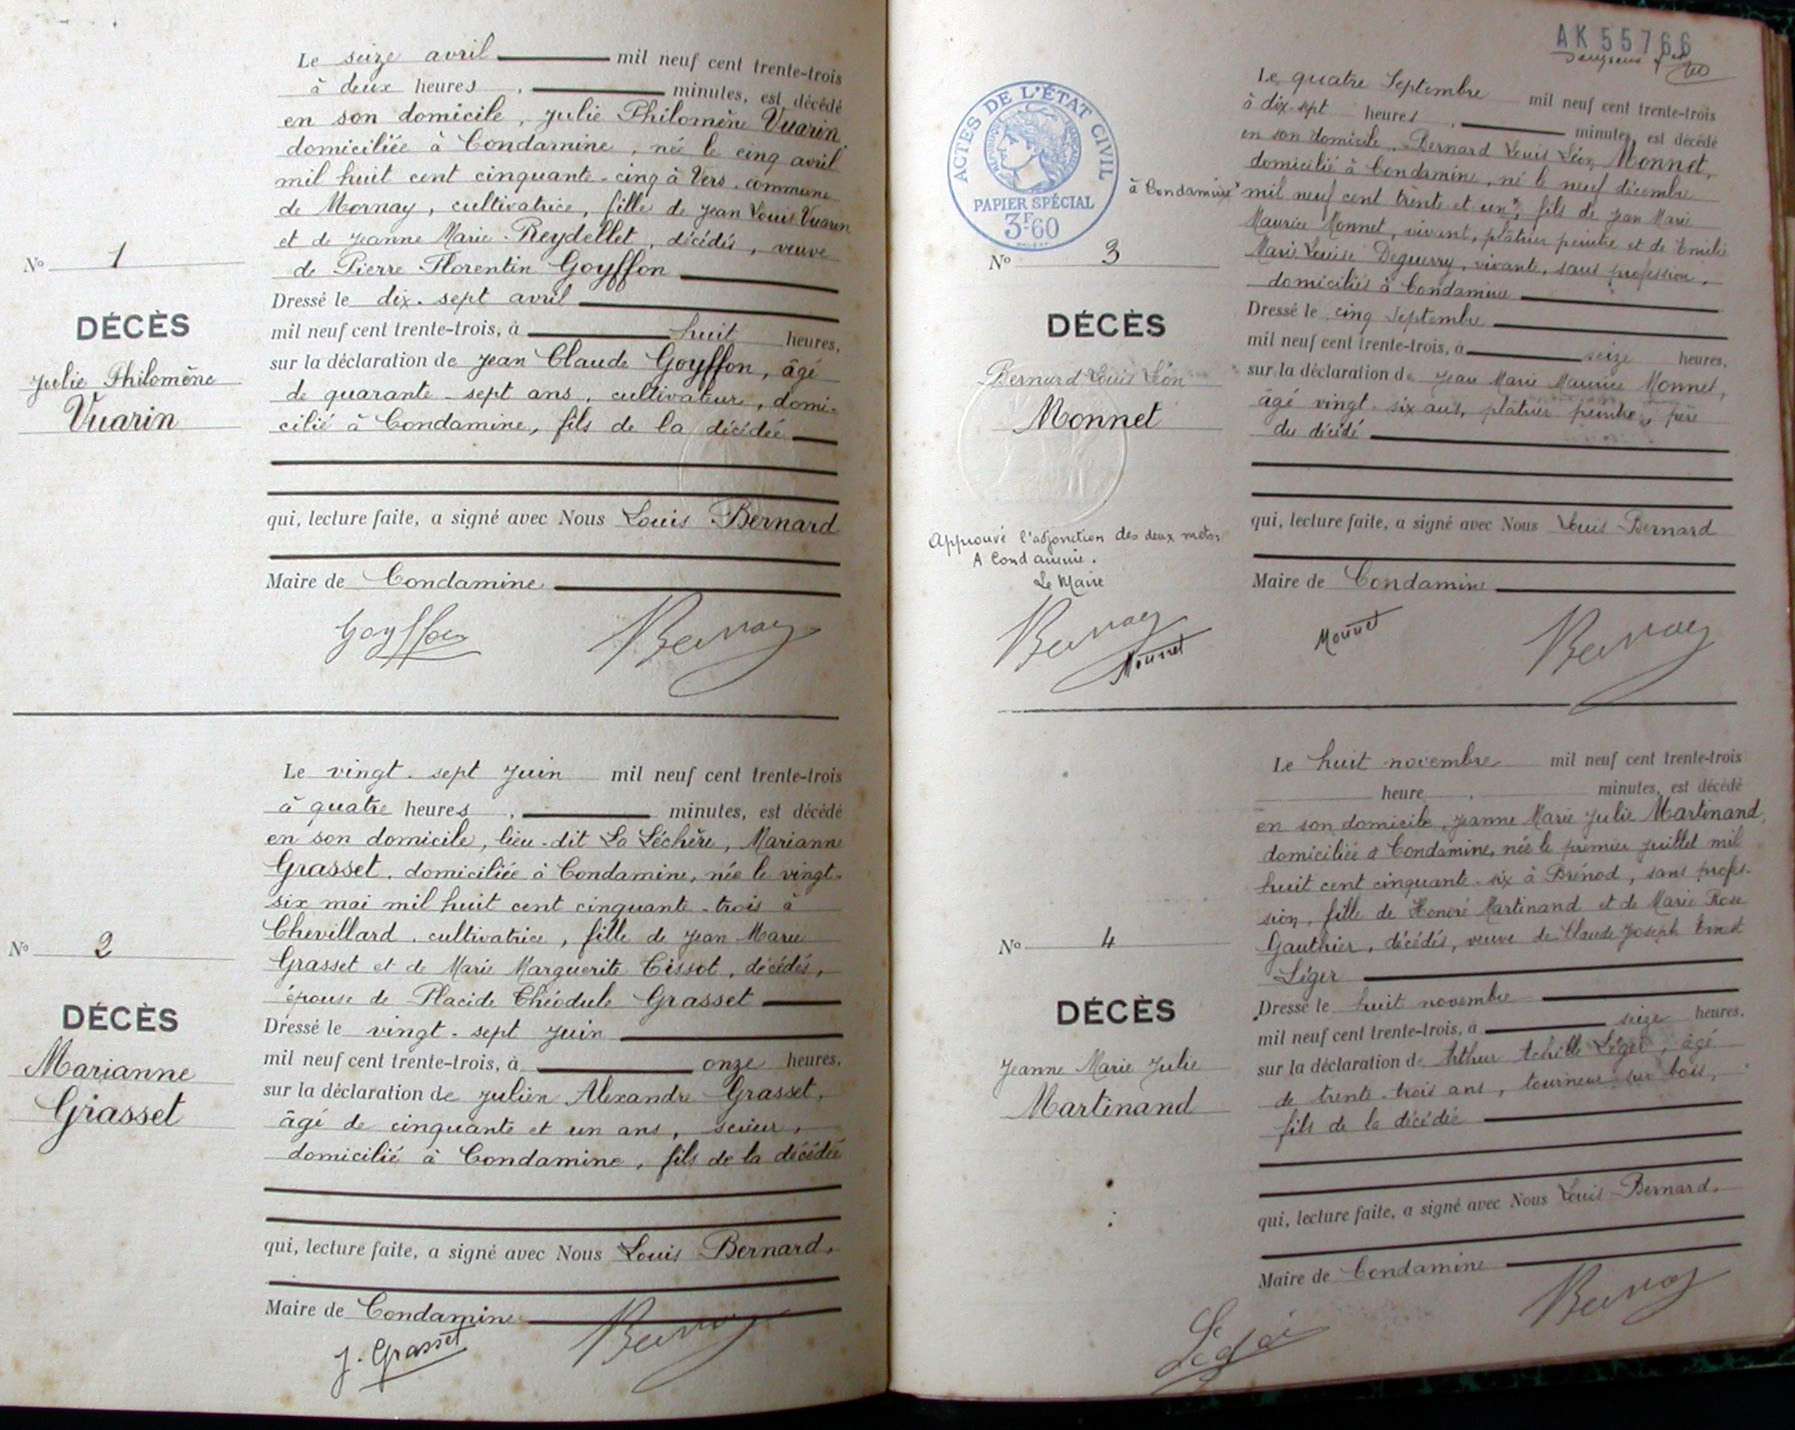 Le seize avril mil neuf cent trente-trois
à deux heures, minutes, est décédé
en son domicile, Julie Philomène Vuarin,
domiciliée à Condamine, née le cinq avril
mil huit cent cinquante-cinq à Vers, commune
de Mornay, cultivatrice, fille de Jean Louis Vuarin
et de Jeanne Marie Reydellet, décédés, veuve
de Pierre Florentin Goyffon
N° 1
DÉCÈS
Julie Philomène
Vuarin
Dressé le dix-sept avril
mil neuf cent trente-trois, à huit heures,
sur la déclaration de Jean Claude Goyffon, âgé
de quarante-sept ans, cultivateur, domi-
cilié à Condamine, fils de la décédée
qui, lecture faite, a signé avec Nous Louis Bernard
Maire de Condamine
Goyffon Bernard
Le vingt-sept Juin mil neuf cent trente-trois
à quatre heures, minutes, est décédé
en son domicile, lieu-dit La Léchère, Marianne
Grasset, domiciliée à Condamine, née le vingt-
six mai mil huit cent cinquante-trois à
Chevillard, cultivatrice, fille de Jean Marie
Grasset et de Marie Marguerite Tissot, décédés,
épouse de Placide Théodule Grasset
N° 2
DÉCÈS
Marianne
Grasset
Dressé le vingt-sept Juin
mil neuf cent trente-trois, à onze heures,
sur la déclaration de Julien Alexandre Grasset,
âgé de cinquante et un ans, scieur,
domicilié à Condamine, fils de la décédée
qui, lecture faite, a signé avec Nous Louis Bernard,
Maire de Condamine
J. Grasset Bernard
AK 55766
ACTES DE L'ÉTAT CIVIL
PAPIER SPÉCIAL
3F60
Le quatre Septembre mil neuf cent trente-trois
à dix-sept heures, minutes, est décédé
en son domicile, Bernard Louis Léon Monnet,
domicilié à Condamine, né le neuf décembre
à Condamine mil neuf cent trente et un, fils de Jean Marie
Maurice Monnet, vivant, plâtrier peintre et de Emilie
Marie Louise Deguerry, vivante, sans profession,
domiciliés à Condamine
N° 3
DÉCÈS
Bernard Louis Léon
Monnet
Dressé le cinq Septembre
mil neuf cent trente-trois, à seize heures,
sur la déclaration de Jean Marie Maurice Monnet,
âgé vingt-six ans, plâtrier peintre, père
du décédé
qui, lecture faite, a signé avec Nous Louis Bernard
Maire de Condamine
Approuvé l'adjonction des deux mots:
A Condamine.
Le Maire
Bernard
Monnet
Monnet Bernard
Le huit novembre mil neuf cent trente-trois
heure, minutes, est décédé
en son domicile, Jeanne Marie Julie Martinand,
domiciliée à Condamine, née le premier juillet mil
huit cent cinquante-six à Brénod, sans profes-
sion, fille de Honoré Martinand et de Marie Rose
Gauthier, décédés, veuve de Claude Joseph Ernest
Léger
N° 4
DÉCÈS
Jeanne Marie Julie
Martinand
Dressé le huit novembre
mil neuf cent trente-trois, à seize heures,
sur la déclaration de Arthur Achille Léger, âgé
de trente-trois ans, tourneur sur bois,
fils de la décédée
qui, lecture faite, a signé avec Nous Louis Bernard,
Maire de Condamine
Léger Bernard